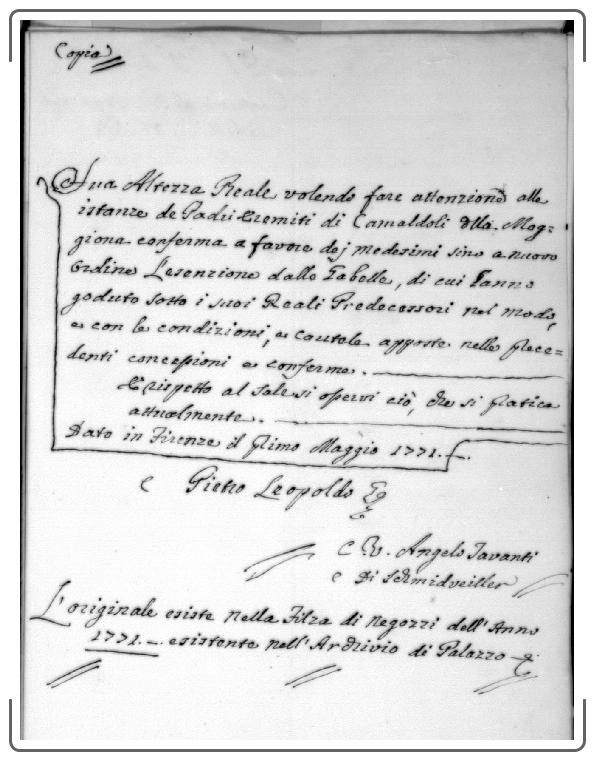 Copia
Sua Altezza Reale volendo fare attenzione alle
istanze de Padri Eremiti di Camaldoli della Mog=
giona conferma a favore dej medesimi sino a nuovo
ordine L'esenzione dalle Tabelle, di cui Fanno
goduto sotto i suoi Reali Predecessori nel modo,
e con le condizioni, e cautele apposte nelle prece=
denti concessioni e conferme.
E rispetto al Sale si osservi ciò, che si pratica
attualmente.
Dato in Firenze il primo Maggio 1771.
Pietro Leopoldo
V. Angelo Tavanti
Di Schmidveiller
L'originale esiste nella Filza di negozzi dell'Anno
1771. esistente nell'Archivio di Palazzo